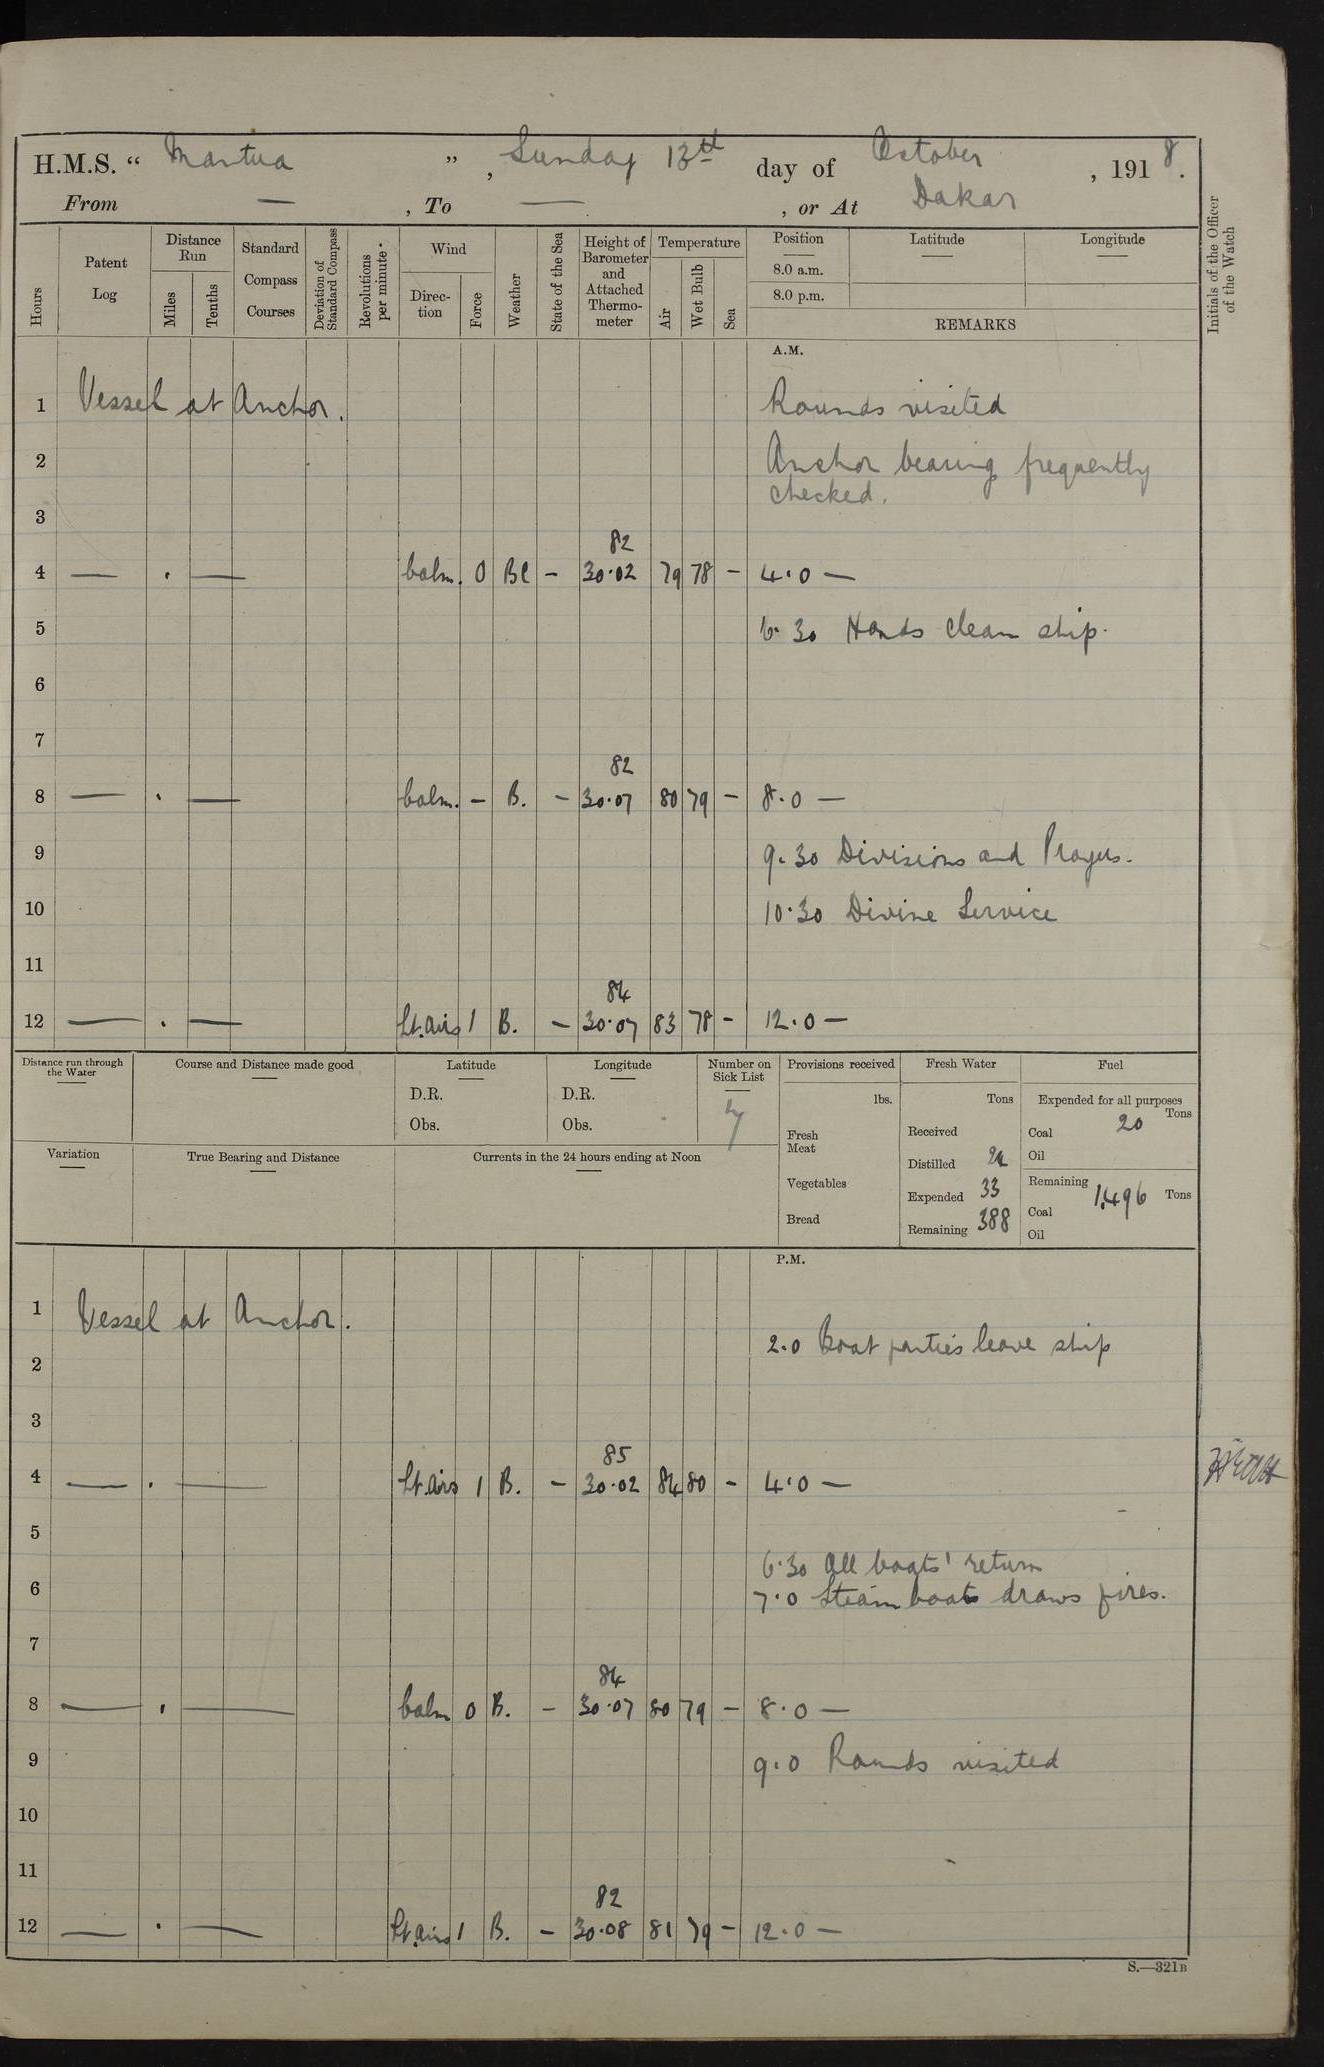 H.M.S. “ Mantua ”, Sunday 13th day of October, 1918.
From — , To — , or At Dakar
Hours
Patent Log
Distance Run
Miles
Tenths
Standard Compass Courses
Deviation of Standard Compass
Revolutions per minute
Wind
Direc-tion
Force
Weather
State of the Sea
Height of Barometer and Attached Thermo-meter
Temperature
Air
Wet Bulb
Sea
Position
8.0 a.m.
8.0 p.m.
Latitude
Longitude
REMARKS
Initials of the Officer of the Watch
A.M.
1 Vessel at Anchor. Rounds visited
2 Anchor bearing frequently
checked.
3
82
4 — . — Calm. 0 BC – 30.02 79 78 – 4.0 —
5 6.30 Hands clean ship.
6
7
82
8 — . — Calm. – B. – 30.07 80 79 – 8.0 —
9 9.30 Divisions and Prayers.
10 10.30 Divine Service
11
84
12 — . — Lt. airs 1 B. – 30.07 83 78 – 12.0 —
Distance run through the Water
Course and Distance made good
Latitude
D.R.
Obs.
Longitude
D.R.
Obs.
Number on Sick List
4
Provisions received
lbs.
Fresh Meat
Vegetables
Bread
Fresh Water
Tons
Received
Distilled 24
Expended 33
Remaining 388
Fuel
Expended for all purposes
Tons
Coal 20
Oil
Remaining
Coal 1,496 Tons
Oil
Variation
True Bearing and Distance
Currents in the 24 hours ending at Noon
P.M.
1 Vessel at Anchor.
2.0 Boat parties leave ship
2
3
85
4 — . — Lt. airs 1 B. – 30.02 84 80 – 4.0 —
5
6.30 All boats' return
6 7.0 Steam boats draws fires.
7
84
8 — . — Calm 0 B. – 30.07 80 79 – 8.0 —
9 9.0 Rounds visited
10
11
82
12 — . — Lt. airs 1 B. – 30.08 81 79 – 12.0 —
S.—321B